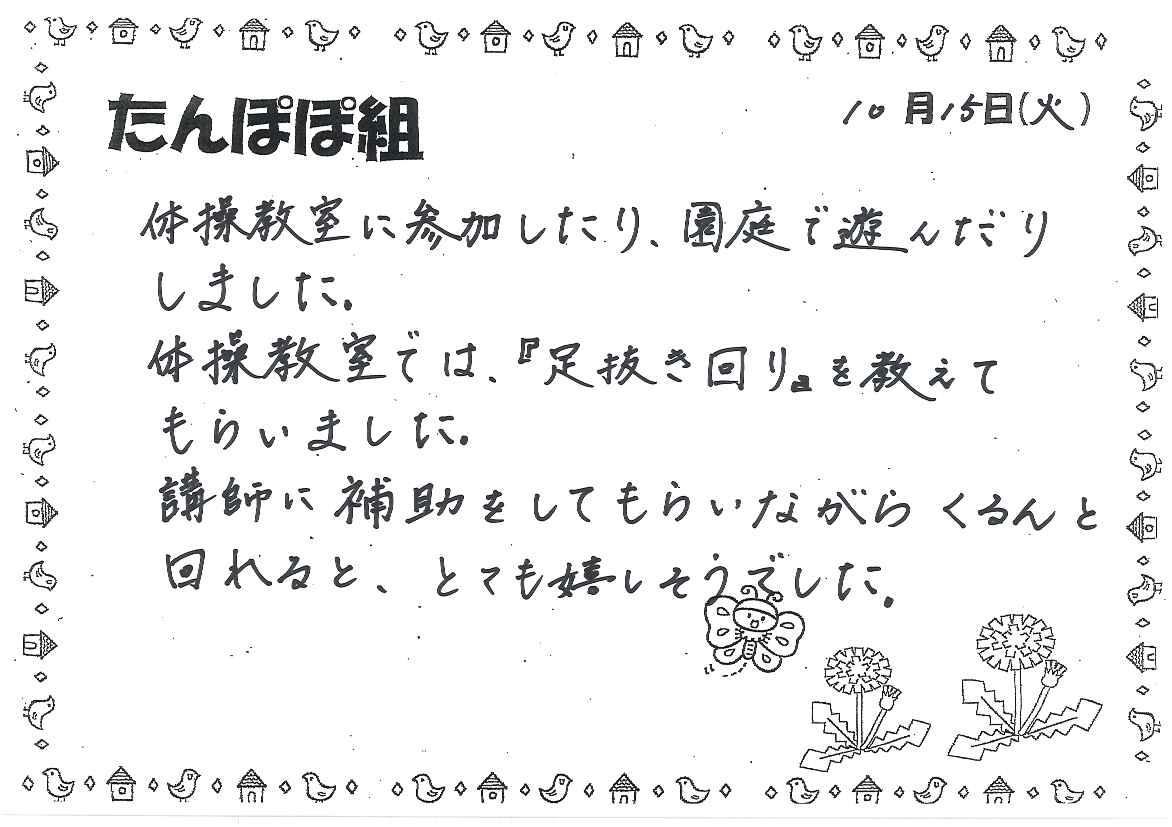 たんぽぽ組
10月15日(火)
体操教室に参加したり、園庭で遊んだり
しました。
体操教室では、『足抜き回り』を教えて
もらいました。
講師に補助をしてもらいながらくるんと
回れると、とても嬉しそうでした。